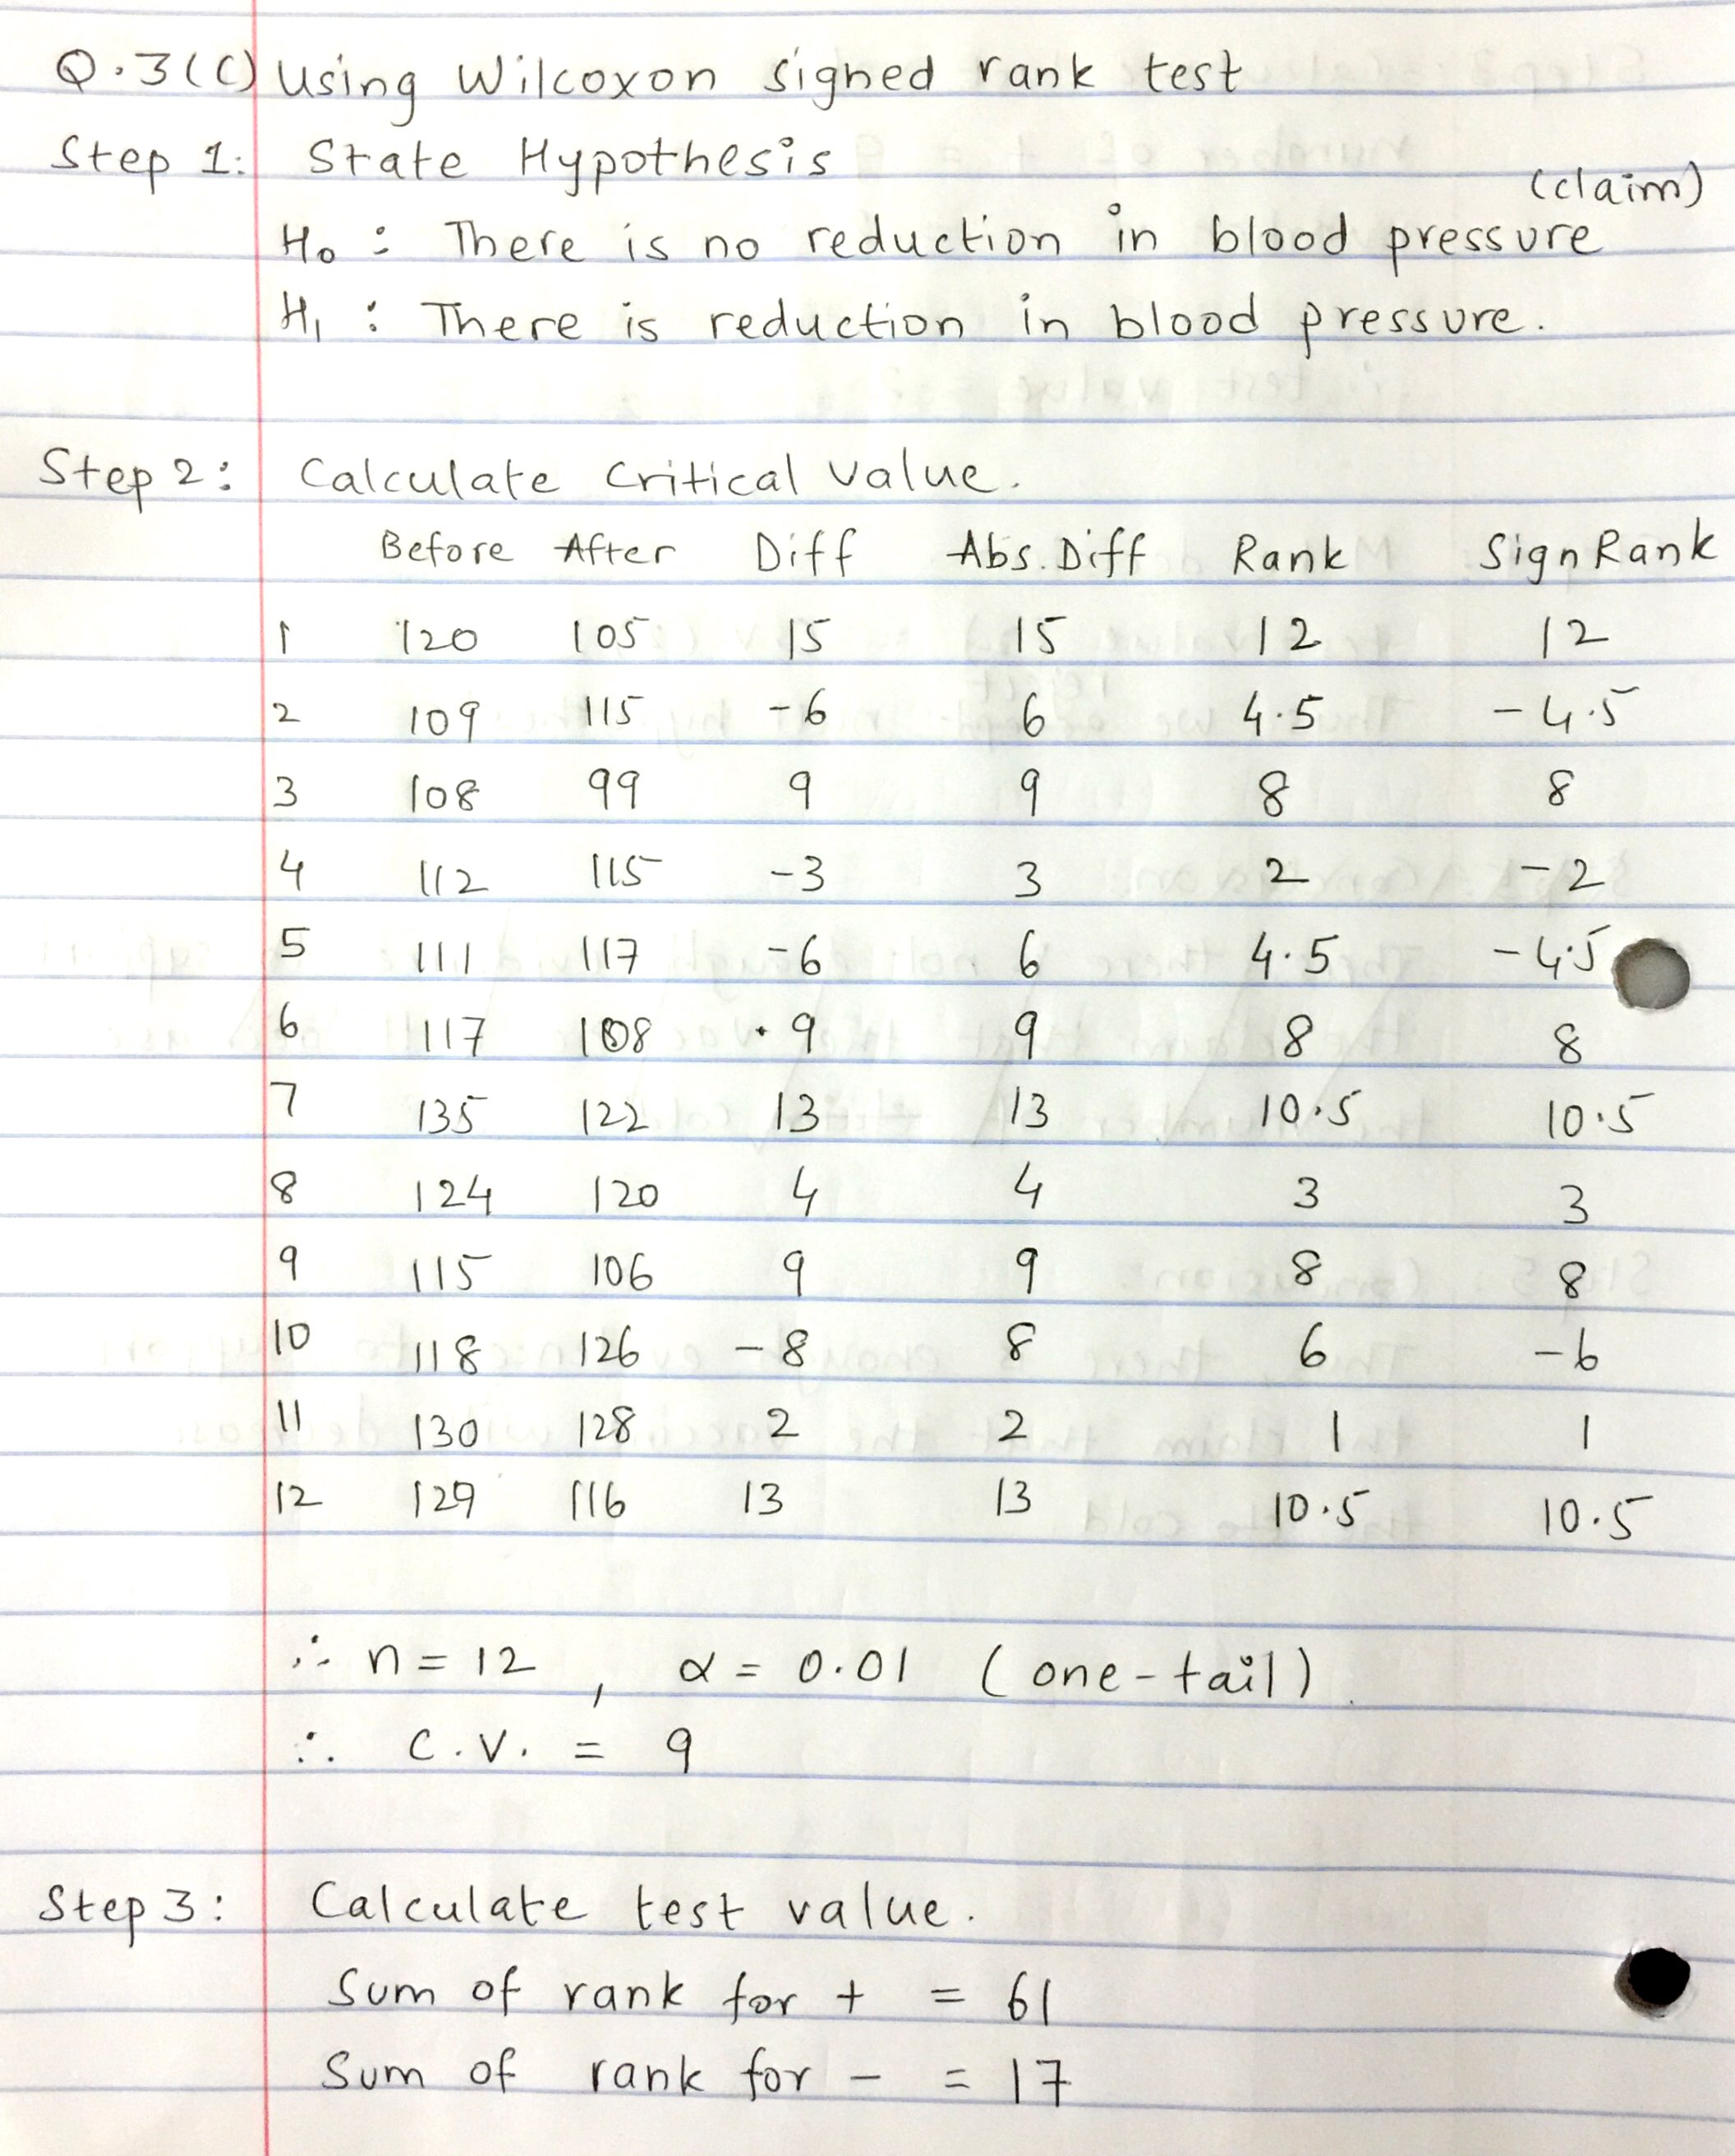 Q.3(C) Using Wilcoxon signed rank test
Step 1: State Hypothesis
(claim)
H₀ : There is no reduction in blood pressure
H₁ : There is reduction in blood pressure.
Step 2: Calculate Critical value.
Before After Diff Abs. Diff Rank Sign Rank
1 120 105 15 15 12 12
2 109 115 -6 6 4.5 -4.5
3 108 99 9 9 8 8
4 112 115 -3 3 2 -2
5 111 117 -6 6 4.5 -4.5
6 117 108 9 9 8 8
7 135 122 13 13 10.5 10.5
8 124 120 4 4 3 3
9 115 106 9 9 8 8
10 118 126 -8 8 6 -6
11 130 128 2 2 1 1
12 129 116 13 13 10.5 10.5
∴ n = 12 , α = 0.01 (one-tail).
∴ C.V. = 9
Step 3: Calculate test value.
Sum of rank for + = 61
Sum of rank for - = 17